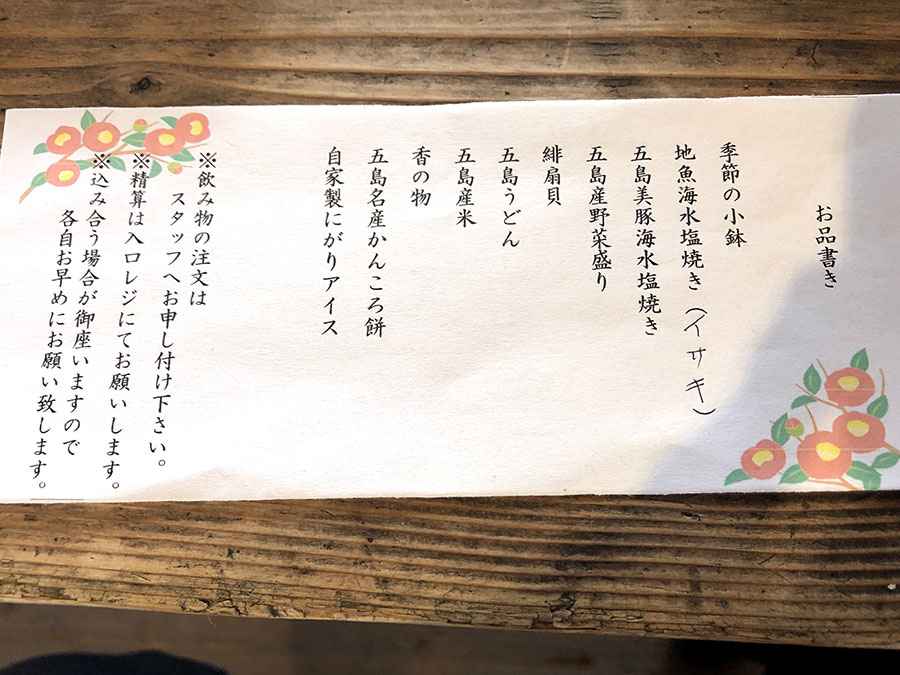 お品書き
季節の小鉢
地魚海水塩焼き(イサキ)
五島美豚海水塩焼き
五島産野菜盛り
緋扇貝
五島うどん
五島産米
香の物
五島名産かんころ餅
自家製にがりアイス
※飲み物の注文は
スタッフへお申し付け下さい。
※精算は入口レジにてお願いします。
※込み合う場合が御座いますので
各自お早めにお願い致します。